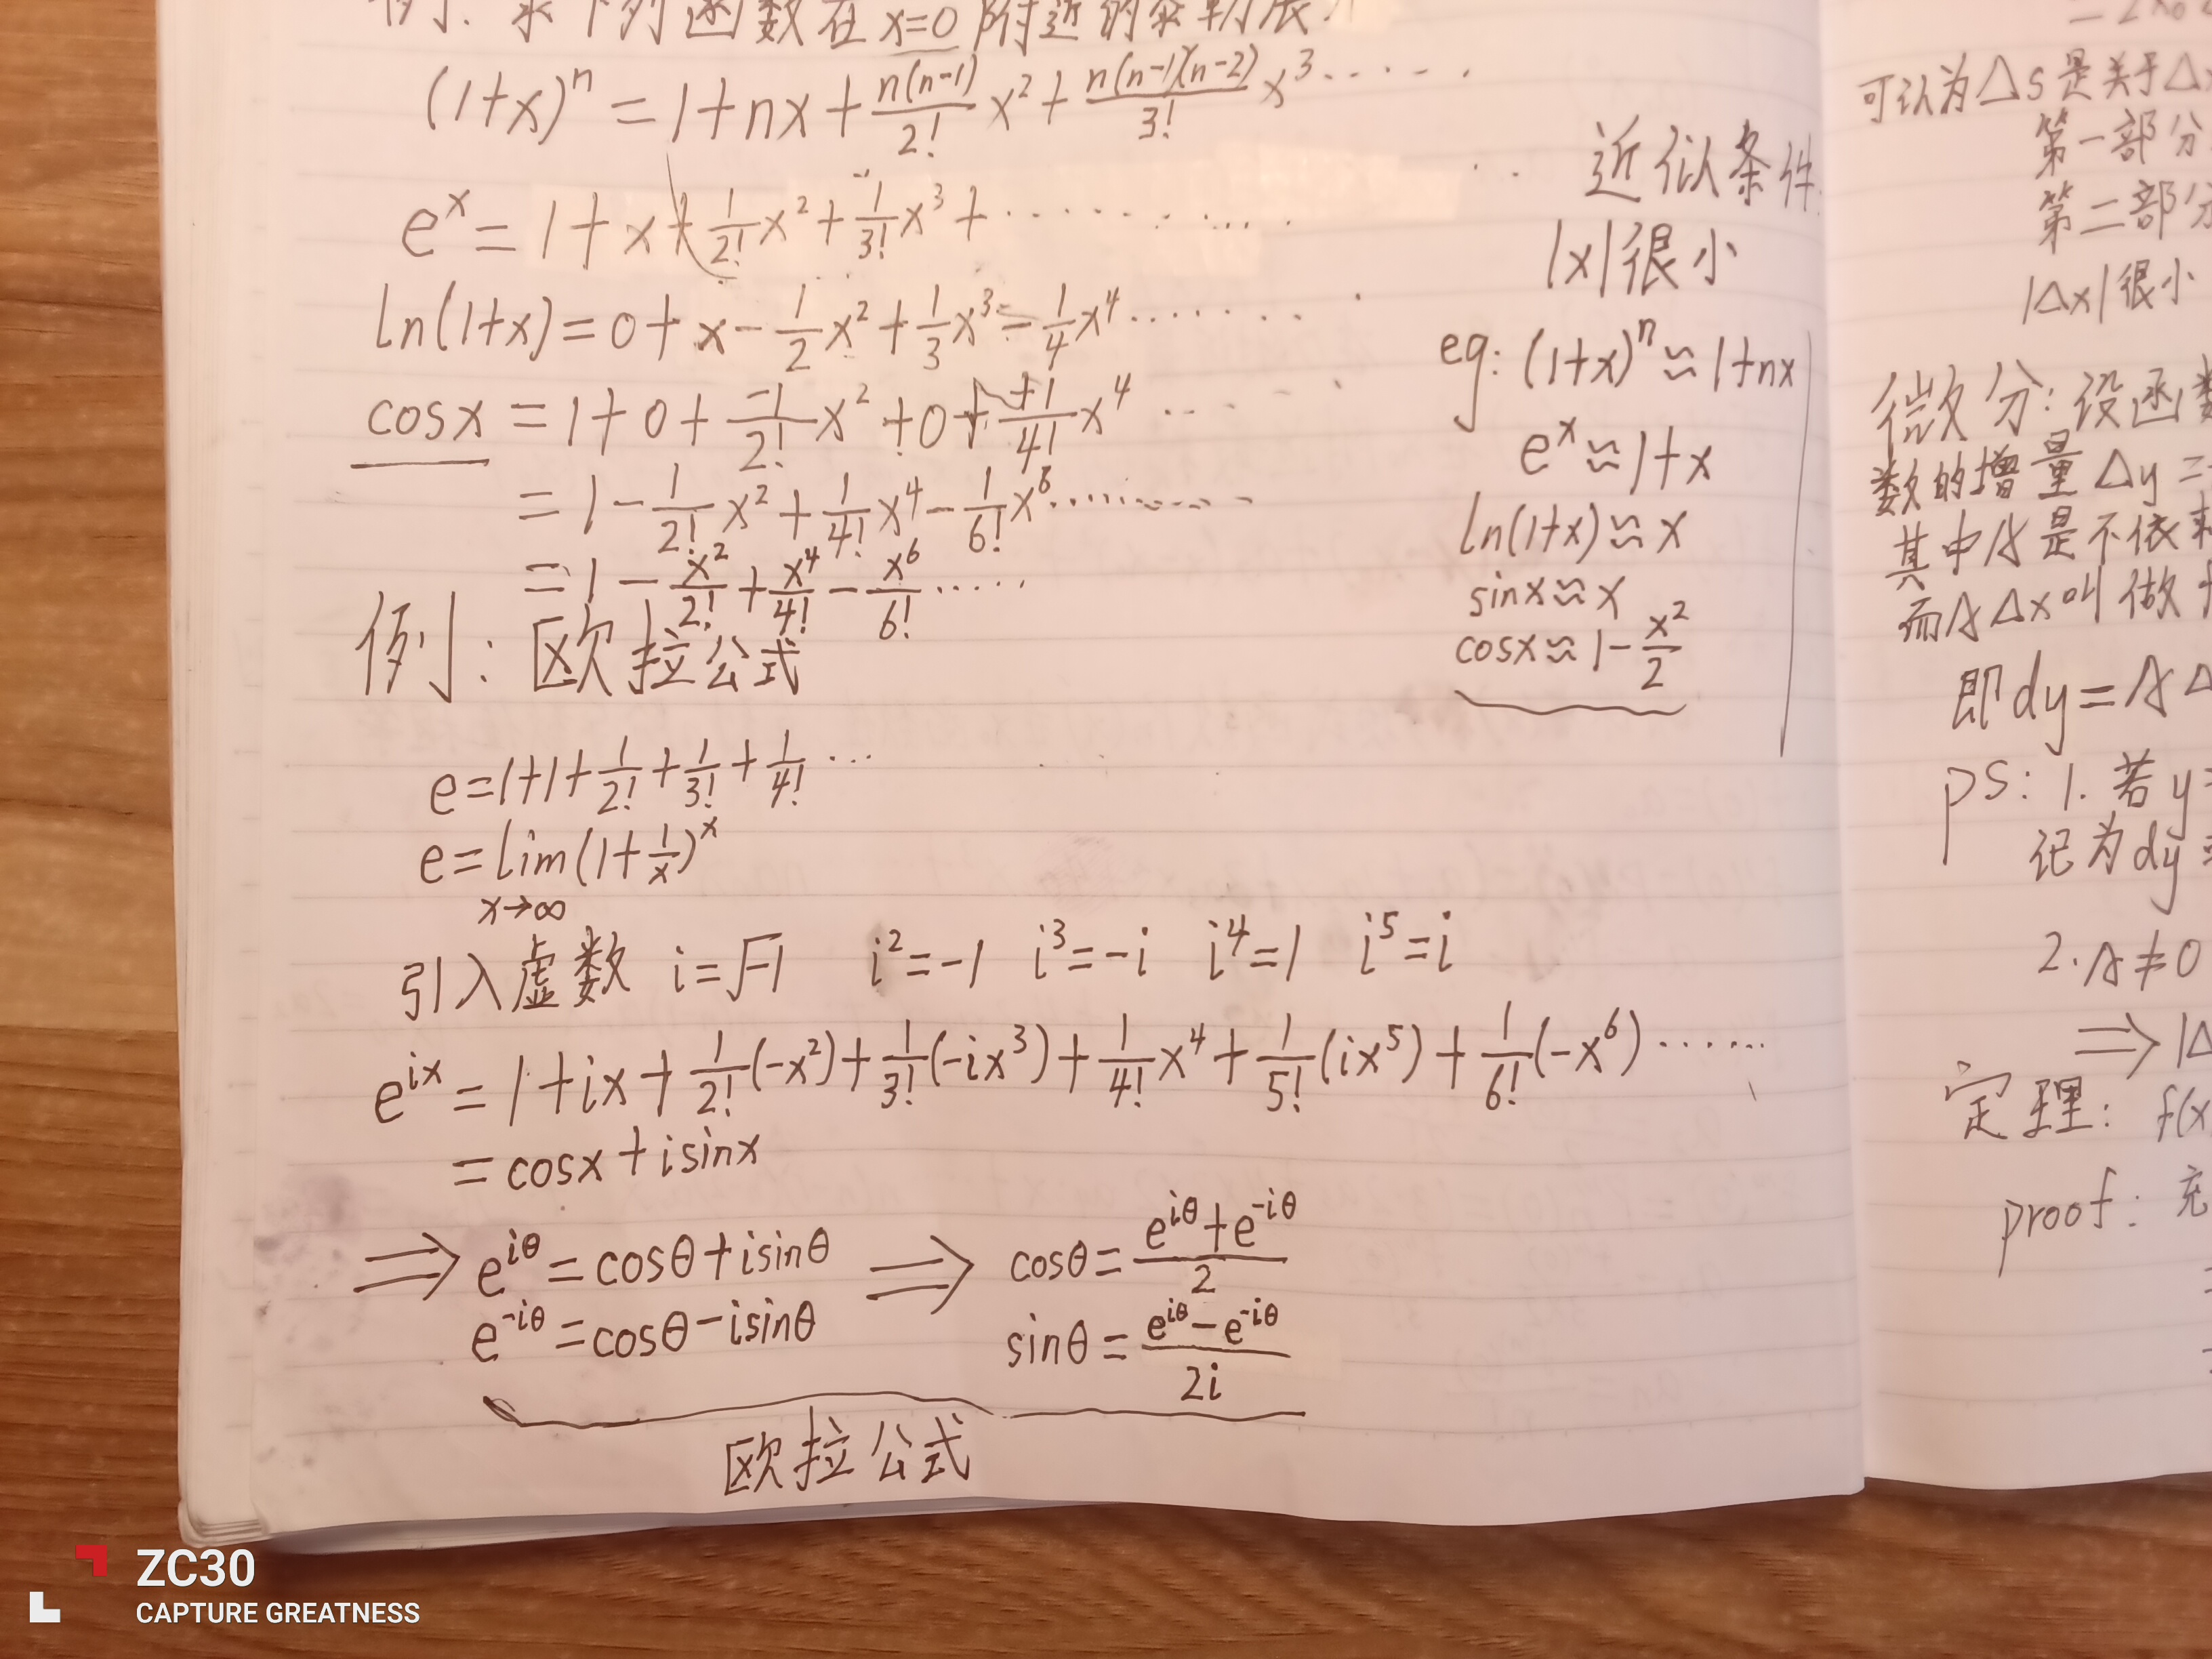 例：求下列函数在x=0附近的泰勒展
(1+x)^n = 1+nx+\frac{n(n-1)}{2!}x^2+\frac{n(n-1)(n-2)}{3!}x^3......
e^x = 1+x+\frac{1}{2!}x^2+\frac{1}{3!}x^3+......
ln(1+x)=0+x-\frac{1}{2}x^2+\frac{1}{3}x^3-\frac{1}{4}x^4......
cosx=1+0+\frac{-1}{2!}x^2+0+\frac{+1}{4!}x^4......
=1-\frac{1}{2!}x^2+\frac{1}{4!}x^4-\frac{1}{6!}x^6......
=1-\frac{x^2}{2!}+\frac{x^4}{4!}-\frac{x^6}{6!}......
近似条件
|x|很小
eg: (1+x)^n≈1+nx
e^x≈1+x
ln(1+x)≈x
sinx≈x
cosx≈1-\frac{x^2}{2}
例：欧拉公式
e=1+1+\frac{1}{2!}+\frac{1}{3!}+\frac{1}{4!}...
e=lim(1+\frac{1}{x})^x
x→∞
引入虚数 i=√-1 i^2=-1 i^3=-i i^4=1 i^5=i
e^{ix}=1+ix+\frac{1}{2!}(-x^2)+\frac{1}{3!}(-ix^3)+\frac{1}{4!}x^4+\frac{1}{5!}(ix^5)+\frac{1}{6!}(-x^6)......
=cosx+isinx
⇒ e^{iθ}=cosθ+isinθ ⇒ cosθ=\frac{e^{iθ}+e^{-iθ}}{2}
e^{-iθ}=cosθ-isinθ sinθ=\frac{e^{iθ}-e^{-iθ}}{2i}
欧拉公式
可认为△s是关于△
第一部分
第二部分
|△x|很小
微分：设函数
数的增量△y=
其中A是不依
而A△x叫做
即dy=A△
ps: 1. 若y
记为dy
2. A≠0
⇒|△
定理： f(x
proof: 充
ZC30
CAPTURE GREATNESS